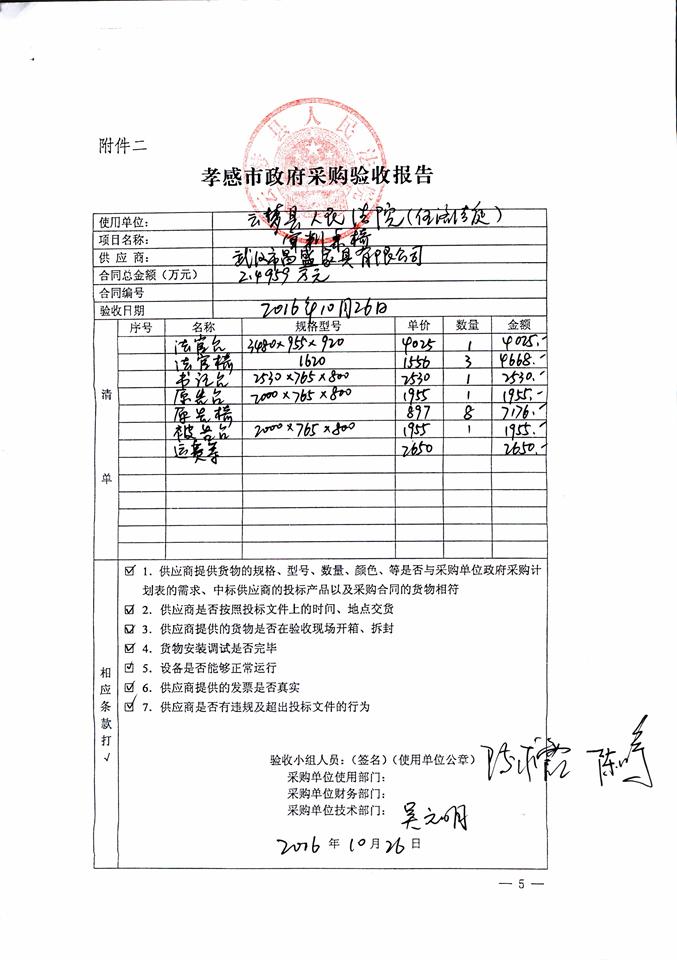 附件二
孝感市政府采购验收报告
使用单位： 云梦县人民法院(伍洛法庭)
项目名称： 审判桌椅
供 应 商： 武汉市昌盛家具有限公司
合同总金额（万元） 2.4959万元
合同编号
验收日期 2016年10月26日
清单
序号 名称 规格型号 单价 数量 金额
法官台 3480×955×920 4025 1 4025.-
法官椅 1620 1556 3 4668.-
书记台 2530×765×800 2530 1 2530.-
原告台 2000×765×800 1955 1 1955.-
原告椅 897 8 7176.-
被告台 2000×765×800 1955 1 1955.-
运费等 2650 2650.-
相应条款打√
☑ 1．供应商提供货物的规格、型号、数量、颜色、等是否与采购单位政府采购计
划表的需求、中标供应商的投标产品以及采购合同的货物相符
☑ 2．供应商是否按照投标文件上的时间、地点交货
☑ 3．供应商提供的货物是否在验收现场开箱、拆封
☑ 4．货物安装调试是否完毕
☑ 5．设备是否能够正常运行
☑ 6．供应商提供的发票是否真实
☑ 7．供应商是否有违规及超出投标文件的行为
验收小组人员：（签名）（使用单位公章）
采购单位使用部门：
采购单位财务部门：
采购单位技术部门： 吴元明
2016 年 10 月 26 日
— 5 —